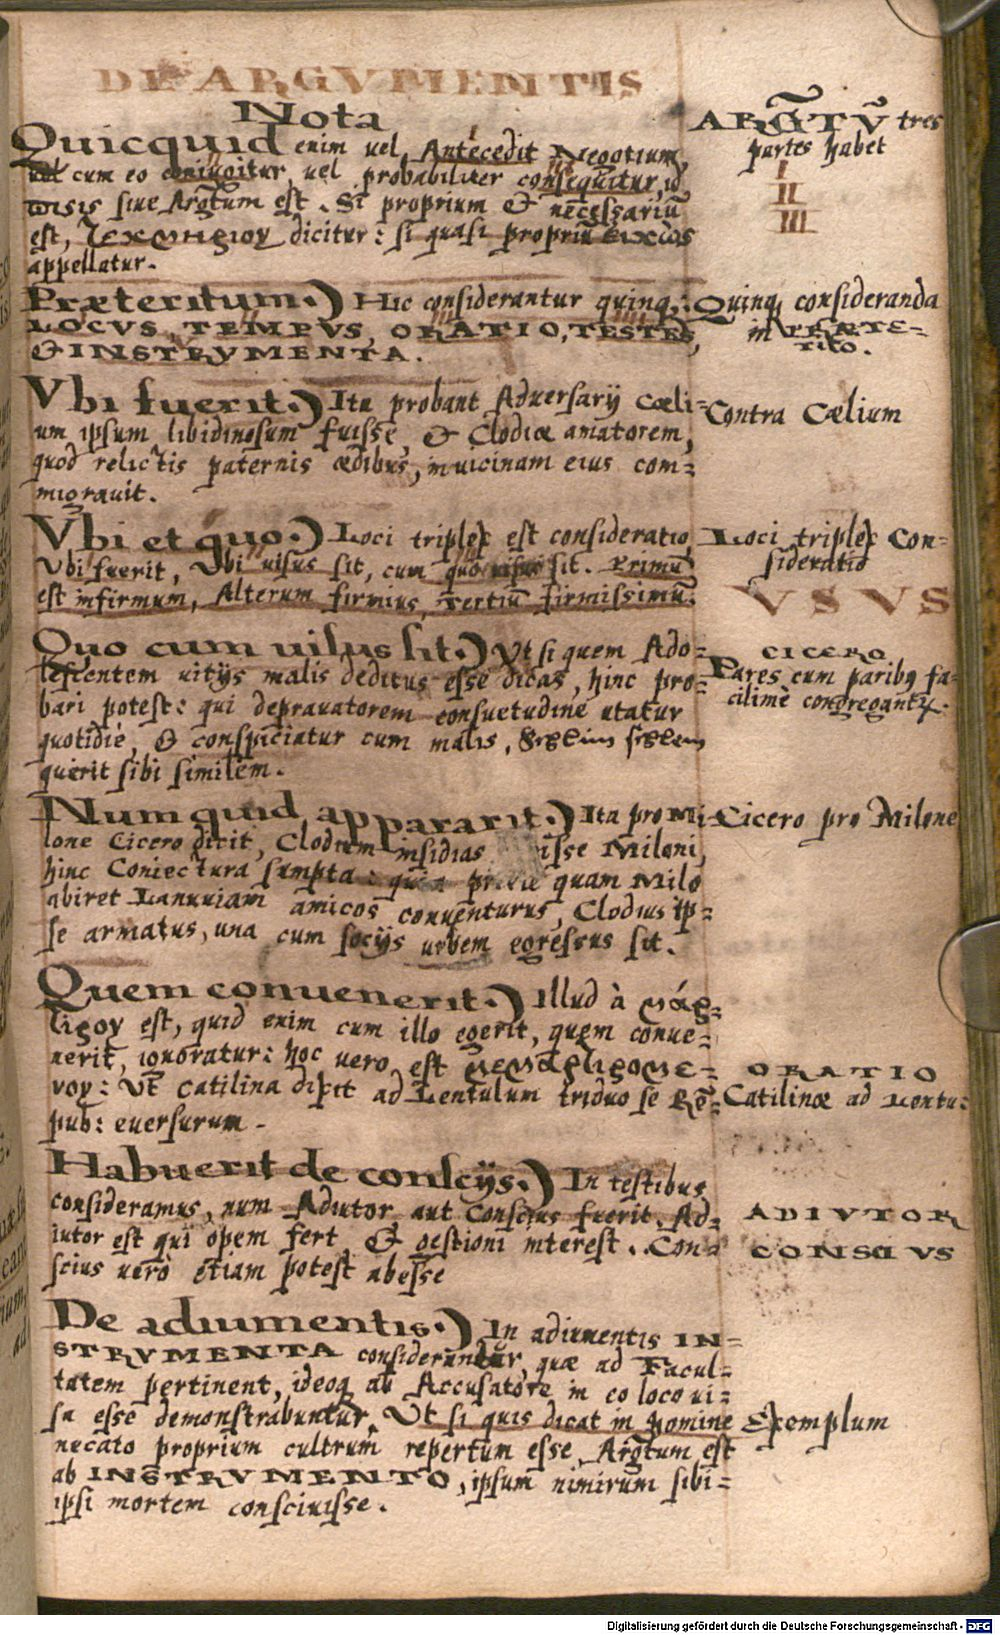 DE ARGVMENTIS
Nota
Quicquid enim uel Antecedit Negotium,
uel cum eo coniungitur, uel probabiliter consequitur, id
siue Argtum est. Si proprium & necessariū
est, τεκμηριον dicitur: si quasi propriū εικως
appellatur.
ARGTŪ tres
partes habet
I
II
III
Præteritum.) Hic considerantur quinq;:
LOCVS, TEMPVS, ORATIO, TESTES,
& INSTRVMENTA.
Quinq; consideranda
in PRÆTE-
RITO.
Vbi fuerit.) Ita probant Aduersarij Cœli-
um ipsum libidinosum fuisse, & Clodiæ amatorem,
quod relictis paternis ædibus, in uicinam eius com-
migrauit.
Contra Cælium
Vbi et quo.) Loci triplex est consideratio,
Vbi fuerit, Vbi uisus sit, cum quo uisus sit. Primū
est infirmum, Alterum firmius, Tertiū firmissimū.
Loci triplex Con-
sideratio
VSVS
Quo cum uisus sit.) Vt si quem Ado-
lescentem uitijs malis deditus esse dicas, hinc pro-
bari potest: qui deprauatorem consuetudine utatur
quotidie, & conspiciatur cum malis,
querit sibi similem.
CICERO
Pares cum paribq fa-
cilimè congregantr.
Num quid appararit.) Ita pro Mi-
lone Cicero dicit, Clodium insidias isse Miloni,
hinc Coniectura sumpta: quia quam Milo
abiret Lanuuiam amicos conuenturus, Clodius ip-
se armatus, una cum socijs urbem egressus sit.
Cicero pro Milone
Quem conuenerit.) Illud à παρελ-
est, quid enim cum illo egerit, quem conue-
nerit, ignoratur: hoc uero est
Vt Catilina dixit ad Lentulum triduo se Rē-
pub: euersurum.
ORATIO
Catilinæ ad Lentu:
Habuerit de conscijs.) In testibus
consideramus, num Adiutor aut Conscius fuerit. Ad-
iutor est qui opem fert & gestioni interest. Con-
scius uero etiam potest abesse
ADIVTOR
CONSCIVS
De adiumentis.) In adiumentis IN-
STRVMENTA considerantur, quæ ad Facul-
tatem pertinent, ideoq ab Accusatore in eo loco ui-
sa esse demonstrabuntur. Vt si quis dicat in homine
necato proprium cultrum repertum esse, Argtum est
ab INSTRVMENTO, ipsum nimirum sibi-
ipsi mortem consciuisse.
Exemplum
Digitalisierung gefördert durch die Deutsche Forschungsgemeinschaft - DFG